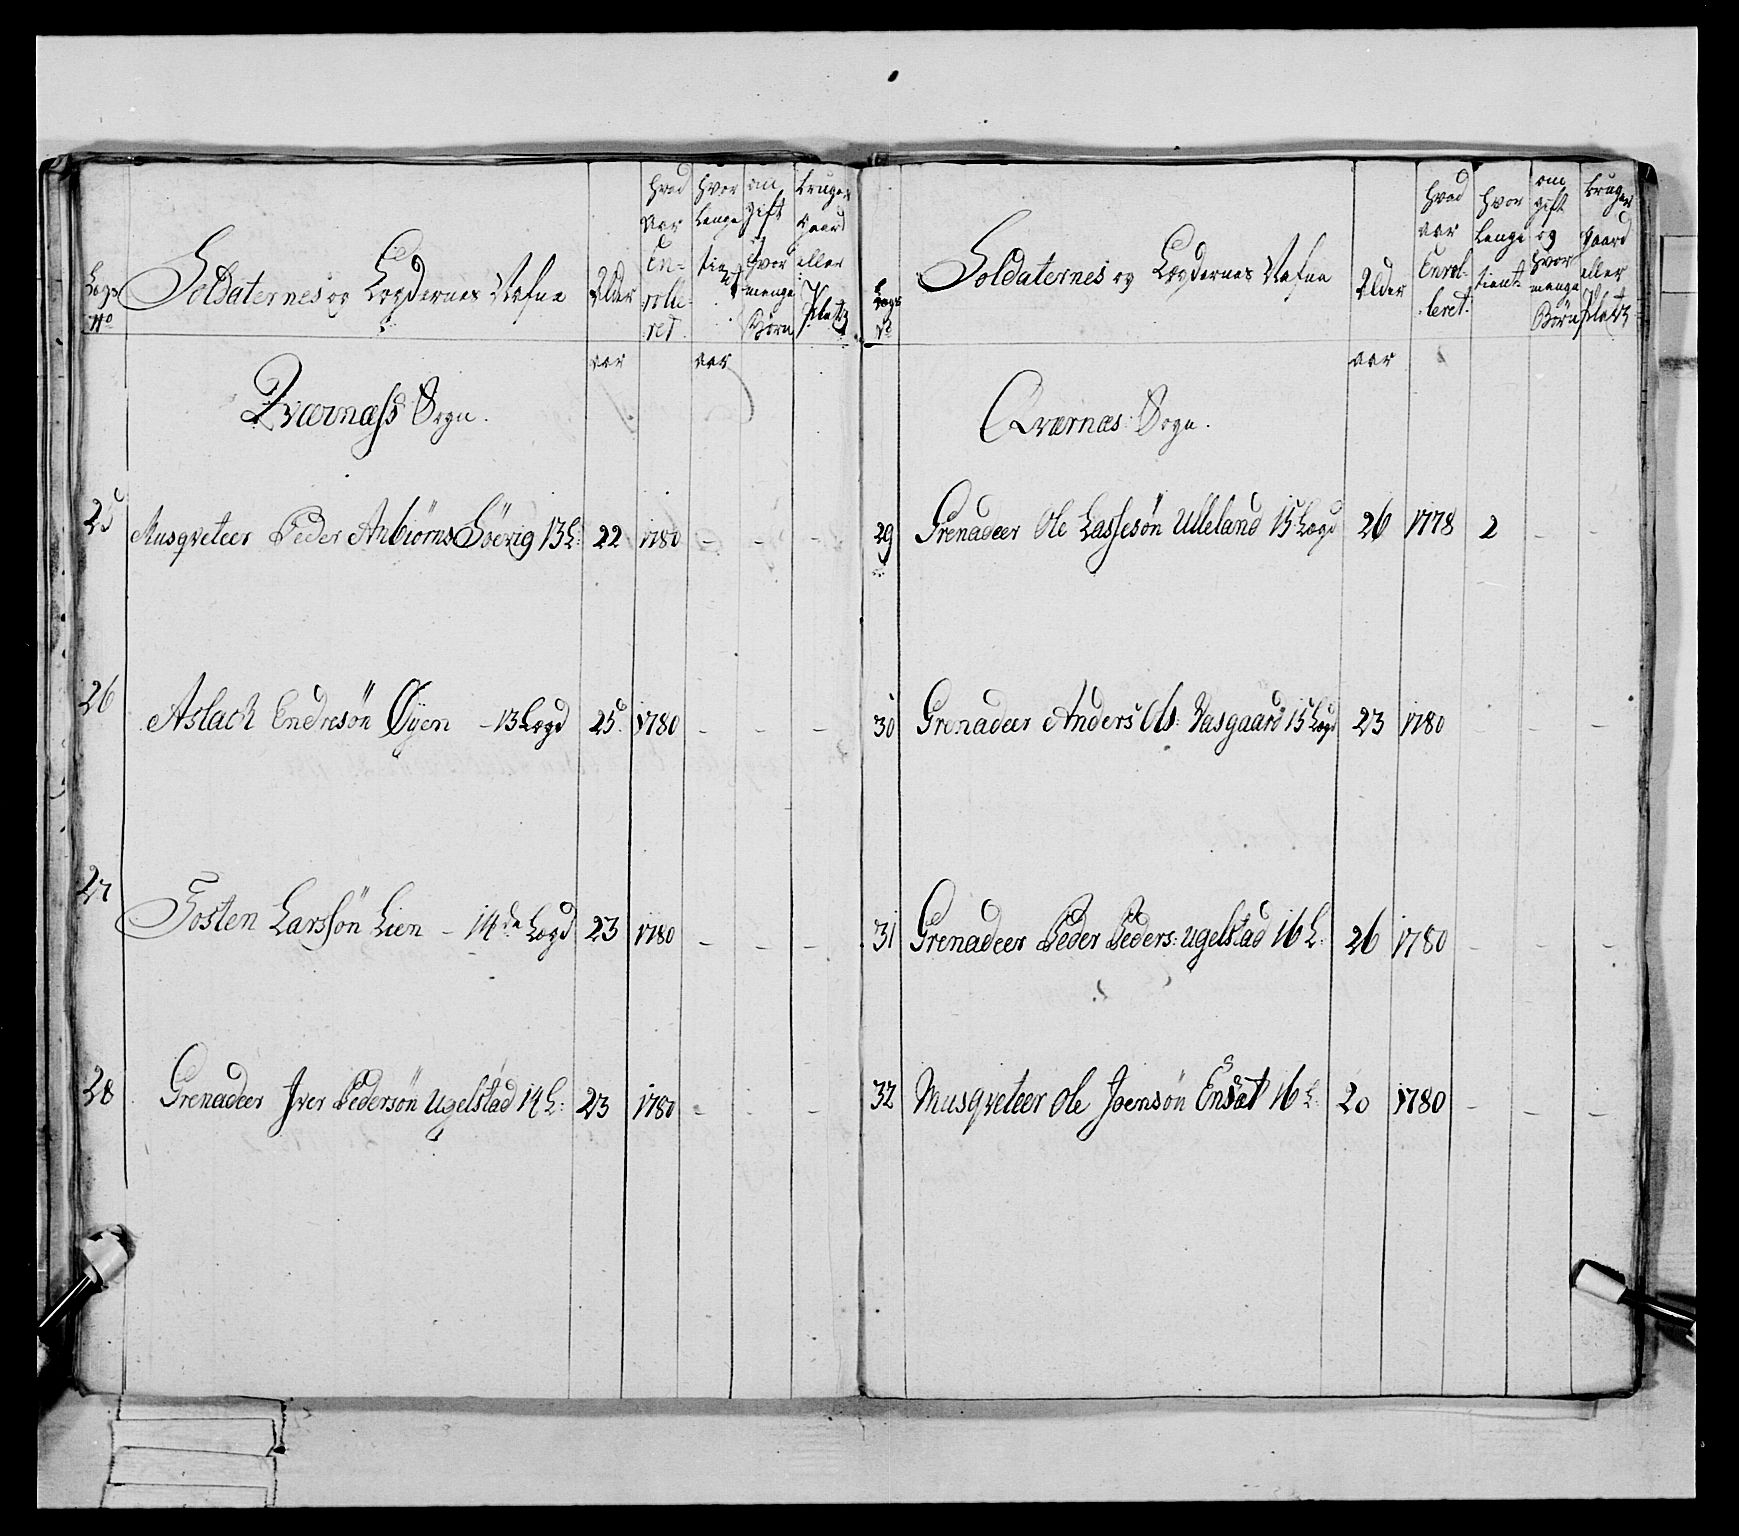 Legs No
Soldaternes og Legdernes Nafne
Alder
hvad Aar En- rolle- ret
hvor lenge tient
om gift og hvor mange Børn
bruger gaard eller Platz
aar
aar
Qværnæss Sogn.
25 Musqveteer Peder Anbiörns Söevig 13 L: 22 1780 - - -
26 Aslach Endresön Öyen - 13 Legd 25 1780 - - -
27 Tosten Larssön Lien - 14de Legd 23 1780 - - -
28 Grenadeer Iver Pedersön Ugelstad 14 L: 23 1780 - - -
Legs No
Soldaternes og Legdernes Nafne
Alder
hvad aar Enrol- leret.
hvor lenge tient
om gift og hvor mange Børn
bruger gaard eller Platz
aar
Qværnæs Sogn.
29 Grenadeer Ole Lassesön Ulleland 15 Legd 26 1778 2 - -
30 Grenadeer Anders Ols: Vasgaard 15 Legd 23 1780 - - -
31 Grenadeer Peder Peders: Ugelstad 16 L: 26 1780 - - -
32 Musqveteer Ole Joensön Ensæt 16 L: 20 1780 - - -